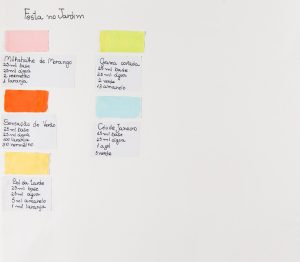 Festa no Jardim
Milkshake de Morango
25 ml base
25 ml água
2 vermelho
1 laranja
Grama cortada
25 ml base
25 ml água
2 verde
13 amarelo
Sensação de Verão
25 ml base
25 ml água
Céu de Janeiro
25 ml base
25 ml água
1 azul
5 verde
Sol da tarde
25 ml base
25 ml água
5 ml amarelo
1 ml laranja